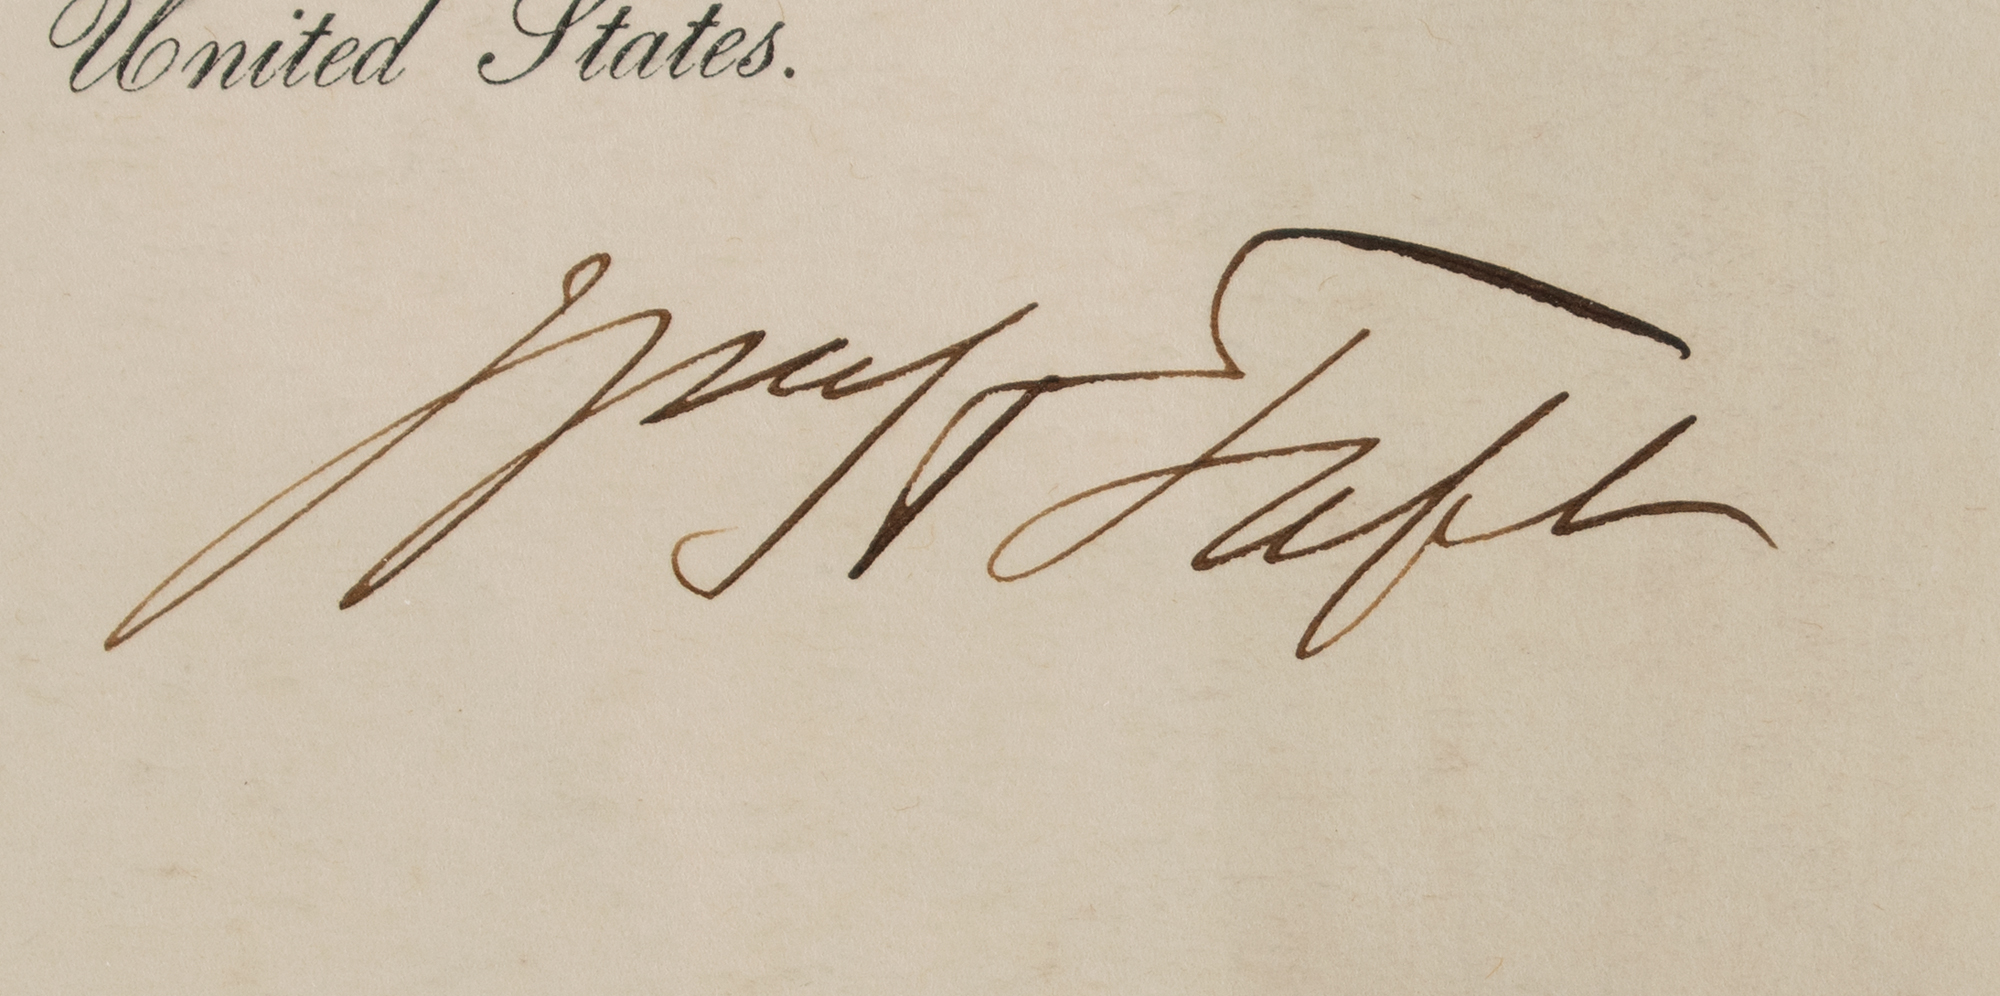 United States.
Wm H Taft